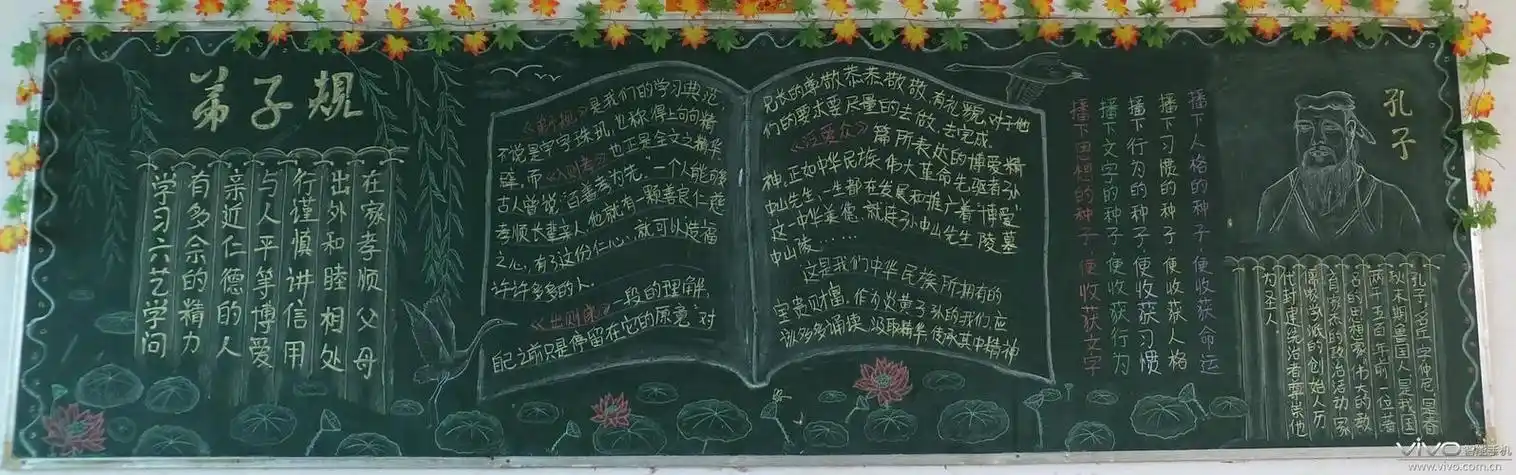 弟子规
在家孝顺父母
出外和睦相处
行谨慎讲信用
与人平等博爱
亲近仁德的人
有多余的精力
学习六艺学问
《弟子规》是我们的学习典范,
不说是字字珠玑,也称得上句句精
辟,而《入则孝》也正是全文之精华
古人曾说"百善孝为先,"一个人能够
孝顺长辈亲人,他就有一颗善良仁慈
之心,有了这份仁心,就可以造福
许许多多的人。
《出则悌》一段的理解,
自己之前只是停留在它的原意"对
兄长的尊敬恭恭敬敬,有礼貌,对于他
们的要求要尽量的去做、去完成。
《泛爱众》篇所表达的博爱精
神,正如中华民族伟大革命先驱者孙
中山先生,一生都在发展和推广着"博爱"
这一中华美德,就连孙中山先生陵墓
中山陵……
这是我们中华民族所拥有的
宝贵财富,作为炎黄子孙的我们,应
该多多诵读,汲取精华,传承其中精神
播下人格的种子·便收获命运
播下习惯的种子·便收获人格
播下行为的种子·便收获习惯
播下文字的种子·便收获行为
播下思想的种子·便收获文字
孔子
孔子,名丘,字仲尼,是春
秋末期鲁国人,是我国
两千五百年前一位著
名的思想家,伟大的教
育家,杰出的政治活动家
儒家学派的创始人,历
代封建统治者尊崇他
为圣人
vivo智能手机
www.vivo.com.cn